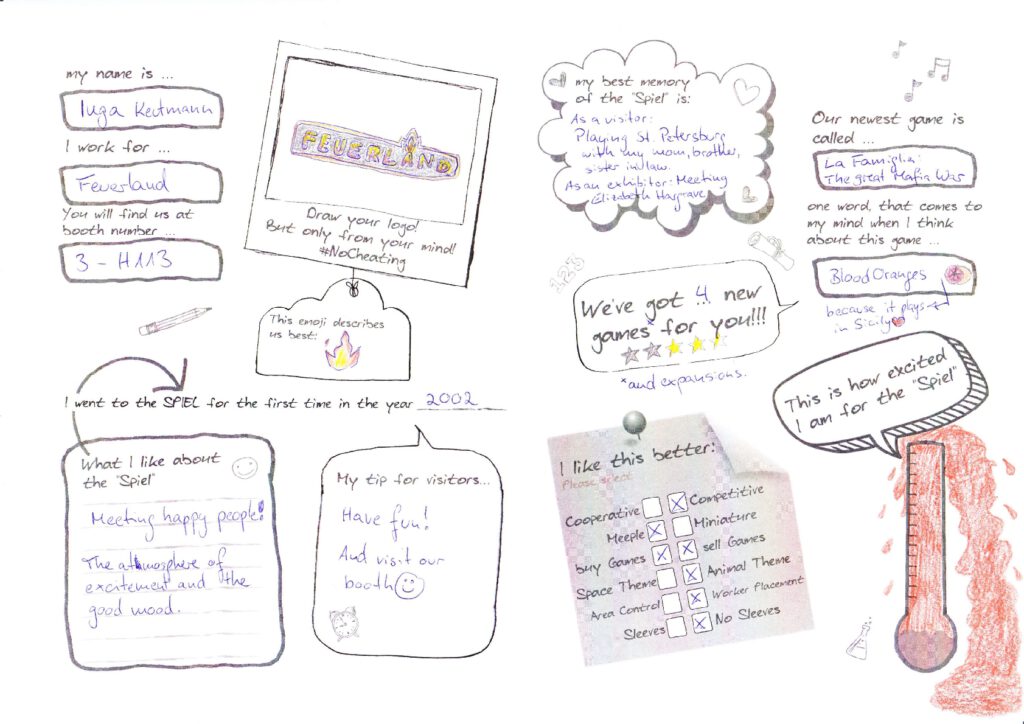 my name is ...
Inga Keutmann
I work for ...
Feuerland
You will find us at
booth number ...
3 - H113
FEUERLAND
Draw your logo!
But only from your mind!
#NoCheating
This emoji describes
us best:
I went to the SPIEL for the first time in the year 2002
What I like about
the "Spiel"
Meeting happy people!
The atmosphere of
excitement and the
good mood.
My tip for visitors...
Have fun!
And visit our
booth
my best memory
of the "Spiel" is:
As a visitor:
Playing St. Petersburg
with my mom, brother,
sister in law.
As an exhibitor: Meeting
Elizabeth Hargrave
123
We've got 4 new
games* for you!!!
*and expansions.
Our newest game is
called ...
La Famiglia:
The great Mafia War
one word, that comes to
my mind when I think
about this game ...
Blood Oranges
because it plays
in Sicily
This is how excited
I am for the "Spiel"
I like this better:
Please select
Cooperative Competitive
Meeple Miniature
buy Games sell Games
Space Theme Animal Theme
Area Control Worker Placement
Sleeves No Sleeves